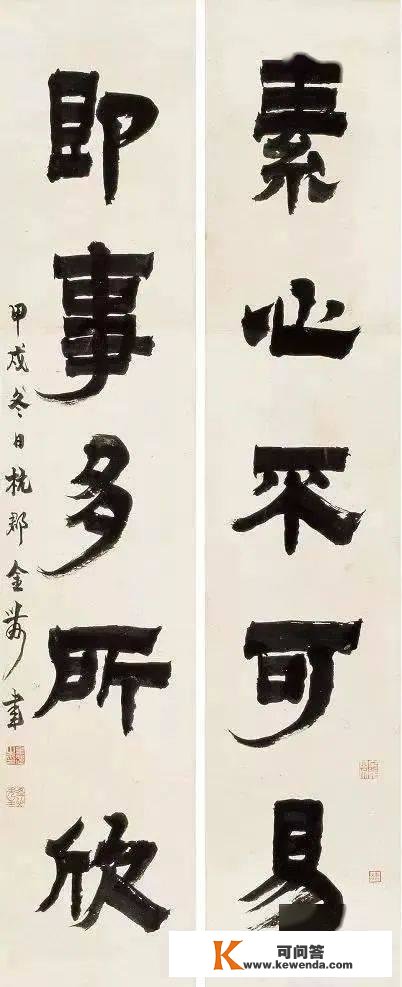 素心不可易
即事多所欣
甲戌冬日杭郡金農書
可问答
www.kewenda.com